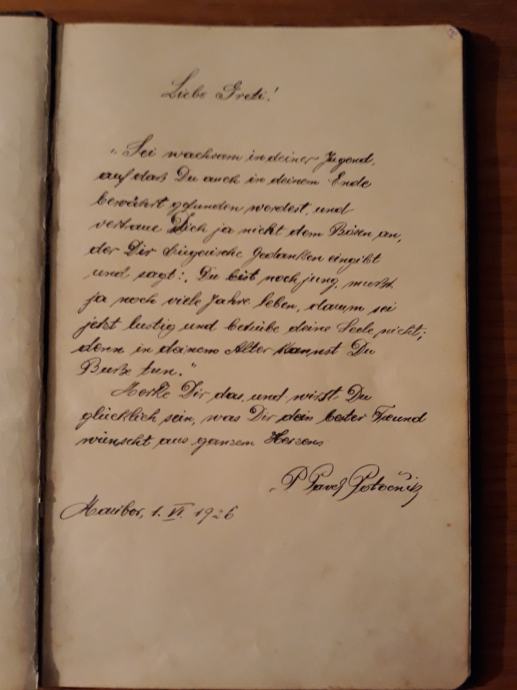 Liebe Greti!
„Sei wachsam in deiner Jugend,
auf daß Du auch in deinem Ende
bewährt gefunden werdest, und
vertraue Dich ja nicht dem Bösen an,
der Dir lügerische Gedanken eingibt
und sagt: Du bist noch jung, mußt
ja noch viele Jahre leben, darum sei
jetzt lustig und betrübe deine Seele nicht;
denn in deinem Alter kannst Du
Buße tun."
Merke Dir das, und wirst Du
glücklich sein, was Dir dein bester Freund
wünscht aus ganzem Herzens
P Pavel Potočnik
Maribor, 1. VI. 1926